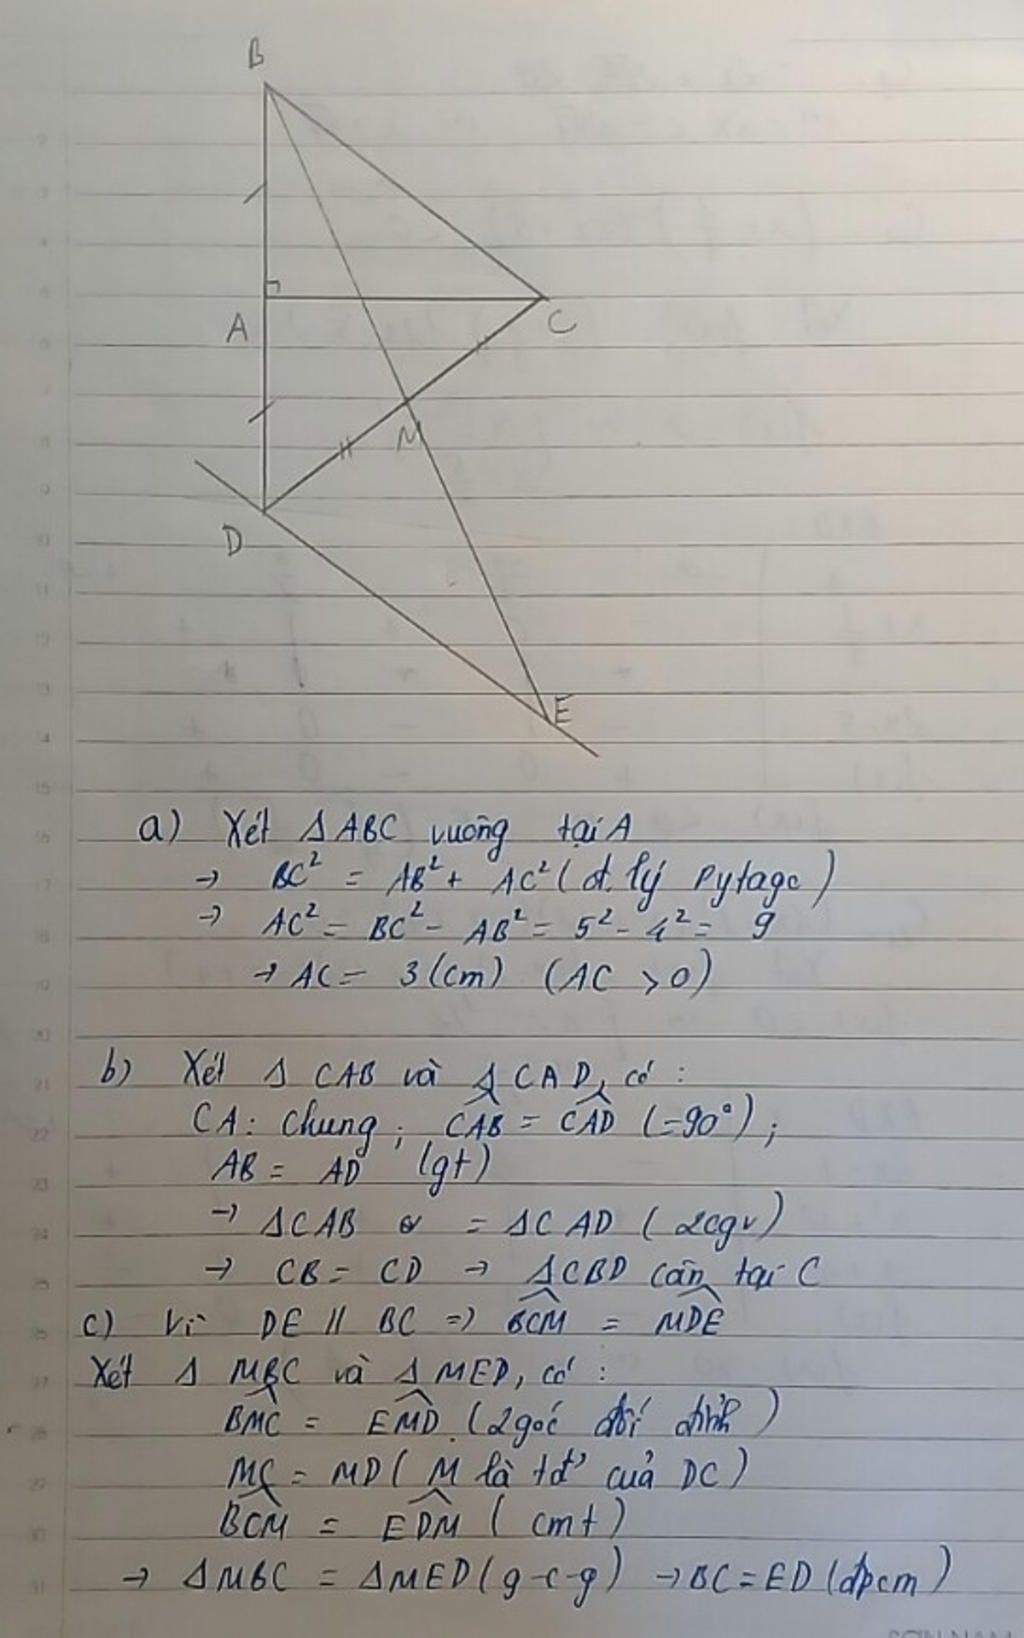 B
A
C
M
D
E
a) Xét Δ ABC vuông tại A
→ BC² = AB² + AC² (đ. lý Pytago)
→ AC² = BC² - AB² = 5² - 4² = 9
→ AC = 3 (cm) (AC > 0)
b) Xét Δ CAB và Δ CAD, có :
CA : chung ; \widehat{CAB} = \widehat{CAD} (= 90°) ;
AB = AD (gt)
→ Δ CAB = Δ CAD (2cgv)
→ CB = CD → Δ CBD cân tại C
c) Vì DE // BC => \widehat{BCM} = \widehat{MDE}
Xét Δ MBC và Δ MED, có :
\widehat{BMC} = \widehat{EMD} (2 góc đối đỉnh)
MC = MD (M là tđ' của DC)
\widehat{BCM} = \widehat{EDM} (cmt)
→ Δ MBC = Δ MED (g-c-g) → BC = ED (đpcm)